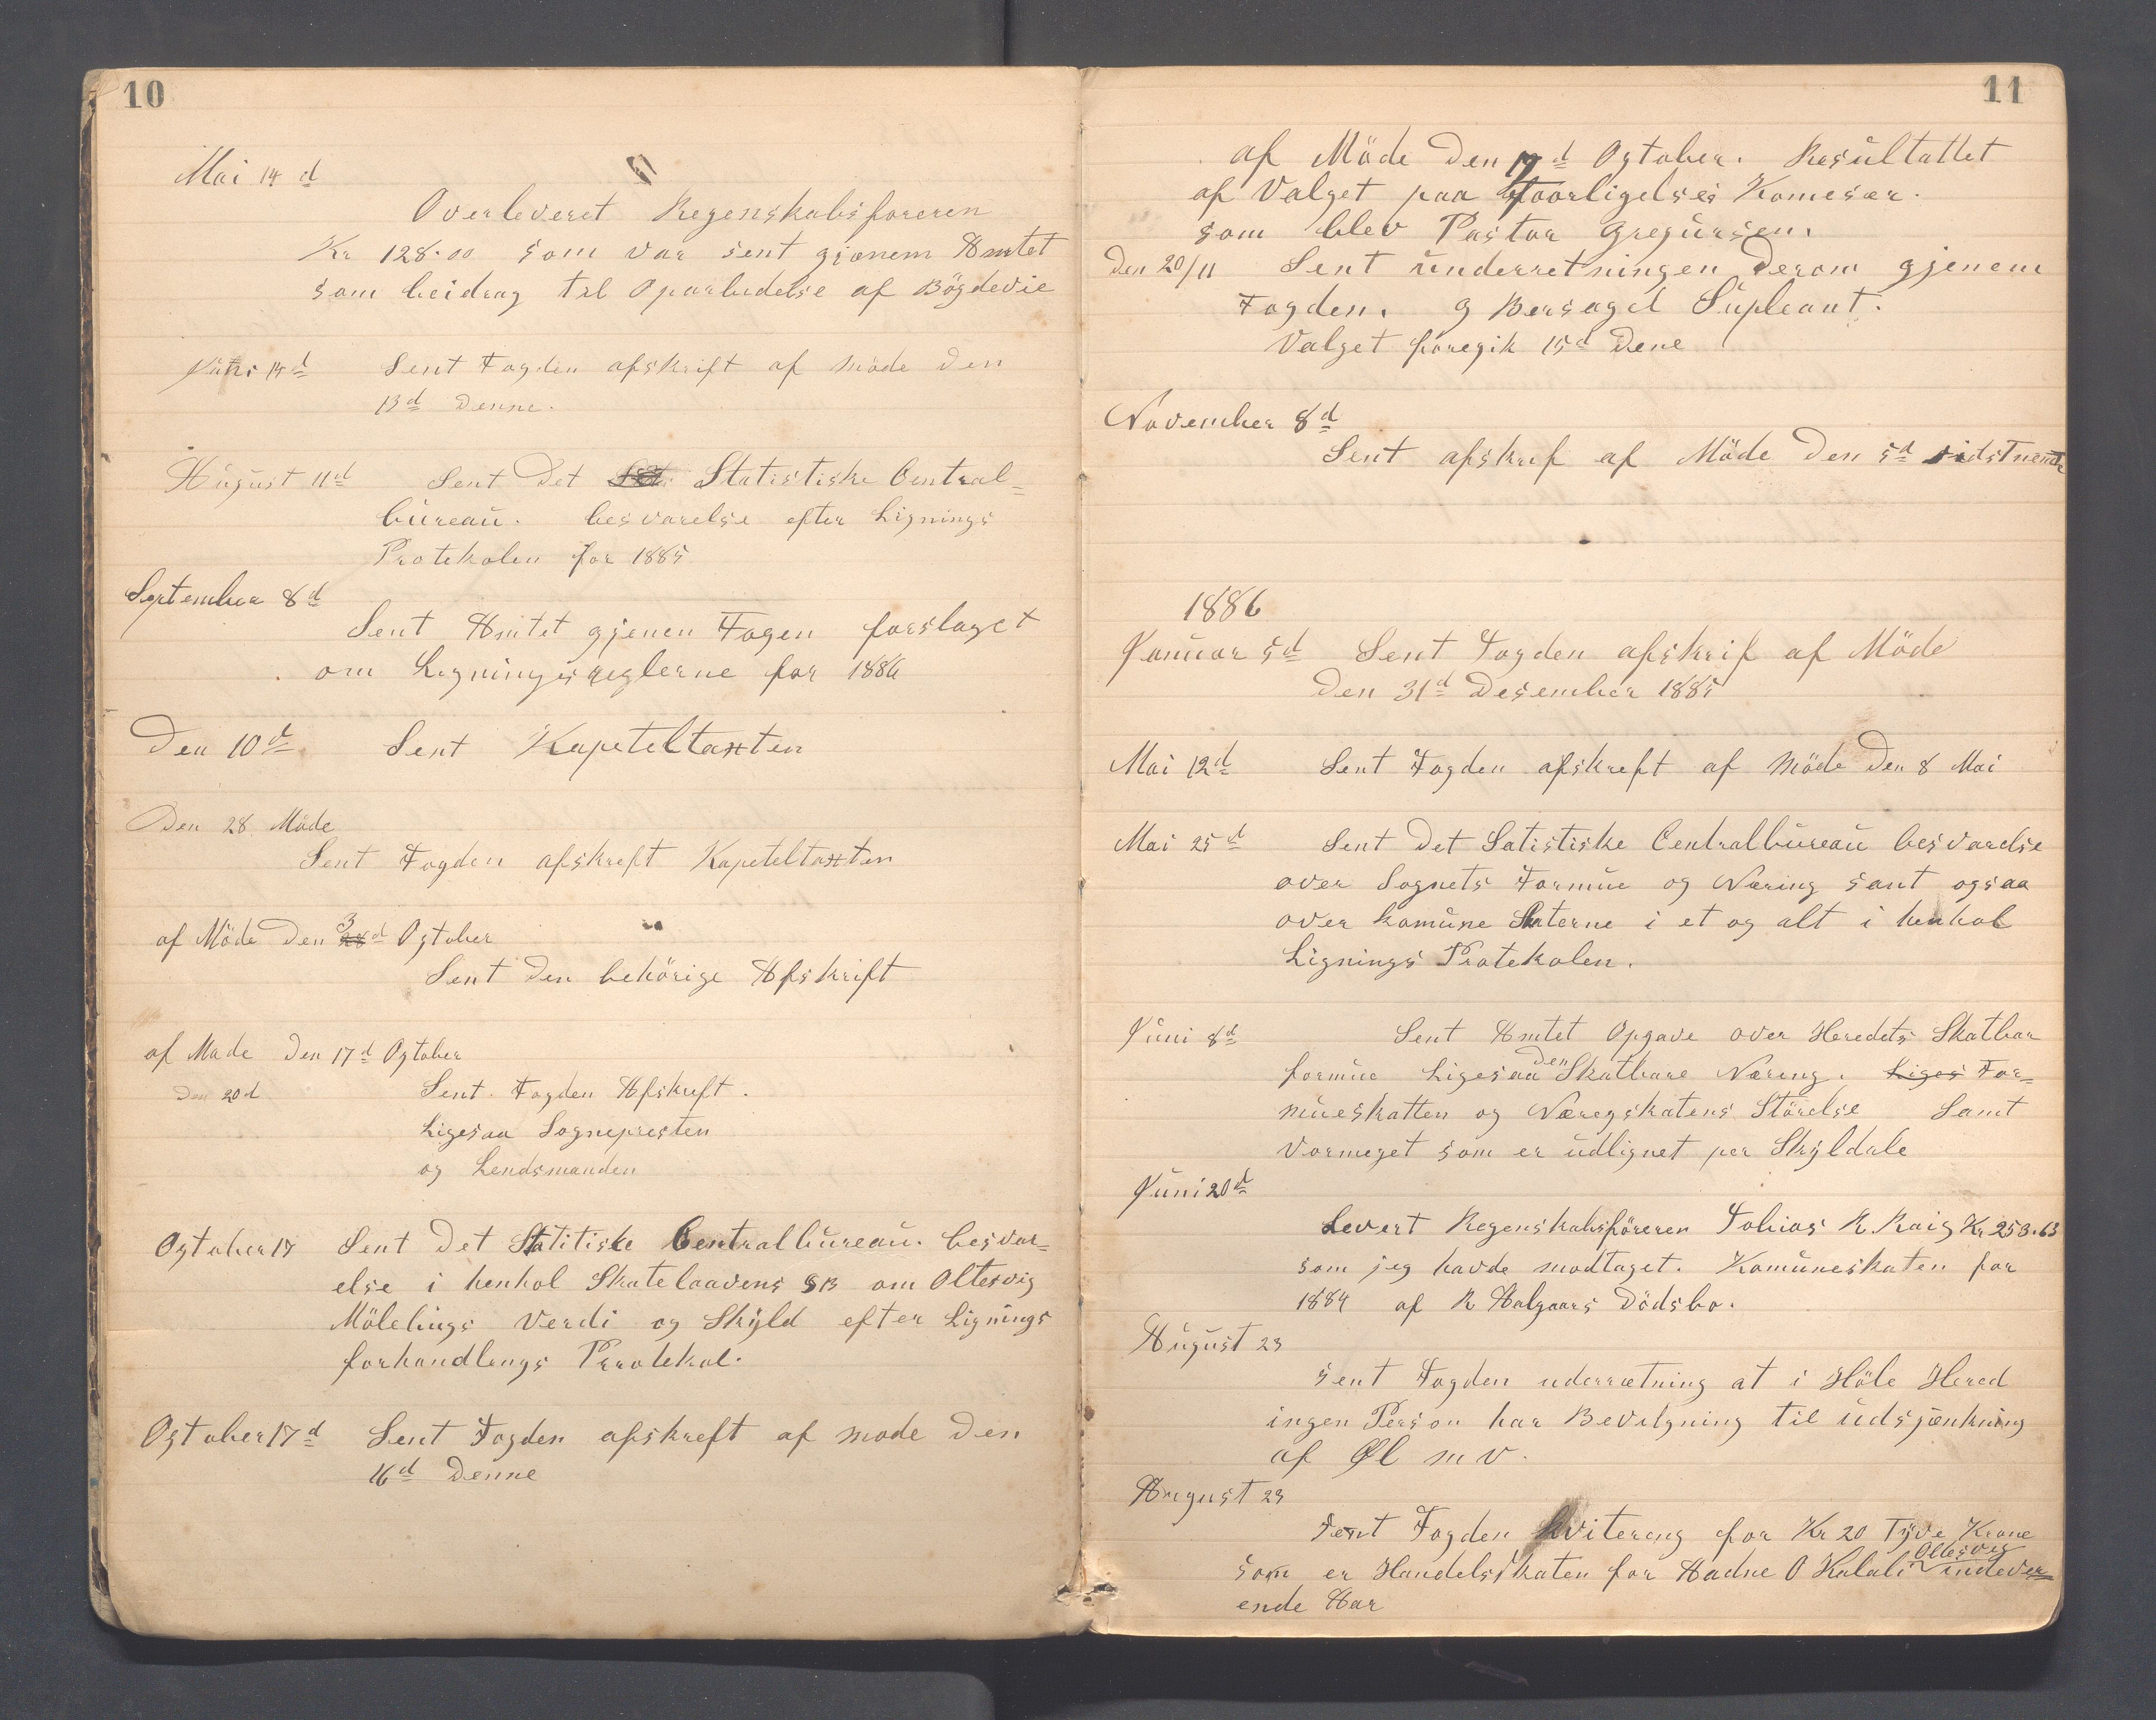 10
Mai 14d
Overleveret Regenskabsföreren
Kr 128.00 som var sent gjönem Amtet
som beidrag tel Oparbedelse af Bögdevie
Juni 14d Sent Fogden afskrift af Möde den
13d Denne.
August 11d Sent Det Statistiske Central=
büreaü. besvarelse efter Lignings
Protekolen for 1885
September 8d
Sent Amtet gjenen Fogen forslaget
om Ligningsreglerne for 1886
Den 10d Sent Kapeteltaxten
Den 28 Möde
Sent Fogden afskreft Kapeteltaxten
af Möde Den 3d Ogtober
Sent Den behörige Afskrift
af Møde Den 17d Ogtober
Den 20d Sent Fogden Afskreft.
Ligesaa Sognepresten
og Lendsmanden
Ogtober 17 Sent Det Statitiske Centralbüreaü. besvar=
else i henhol Skatelaavens § 13 om Oltesvig
Mölebrugs Verdi og Skÿld efter Lignings
forhandlings Prrotekol.
Ogtober 17d Sent Fogden afskreft af møde Den
16d Denne
11
af Möde Den 17d Ogtober. Resültattet
af Valget paa Komesær.
som blev Pastor Gregürsen.
Den 20/11 Sent ünderretningen Derom gjenem
Fogden. G Bersagel Süpleant.
Valget foregik 15d Dene
November 8d
Sent afskrif af Möde Den 5d sidstnevnte
1886
Janüar 5d Sent Fogden afskrif af Möde
Den 31d Desember 1885
Mai 12d Sent Fogden afskreft af Möde Den 8 Mai
Mai 25d Sent Det Satistiske Centralbüreaü besvarelse
over Sognets Formüe og Næring samt ogsaa
over komüne Skaterne i et og alt i henhol
Lignings Protekolen.
Jüni 8d Sent Amtet Opgave over Heredets Skatbar
formüe Ligesaa den Skatbare Næreng. Liges For=
müeskatten og Næregskatens Störelse Samt
Vormeget som er üdlignet per Skÿldale
Jüni 20d
Levert Regenskabsföreren Tobias R. Raig Kr 253.63
som jeg havde modtaget. Komüneskaten for
1884 af R Halgaars Dödsbo.
Aügust 23
Sent Fogden uderrætning at i Höle Hered
ingen Person har Bevilgning til üdsjænkning
af Øl m v.
August 23
Sent Fogden kvitereng for Kr 20 Tÿve Krone
som er Handelsskaten for Aadne O Kalali Oltesvig indever=
ende Aar